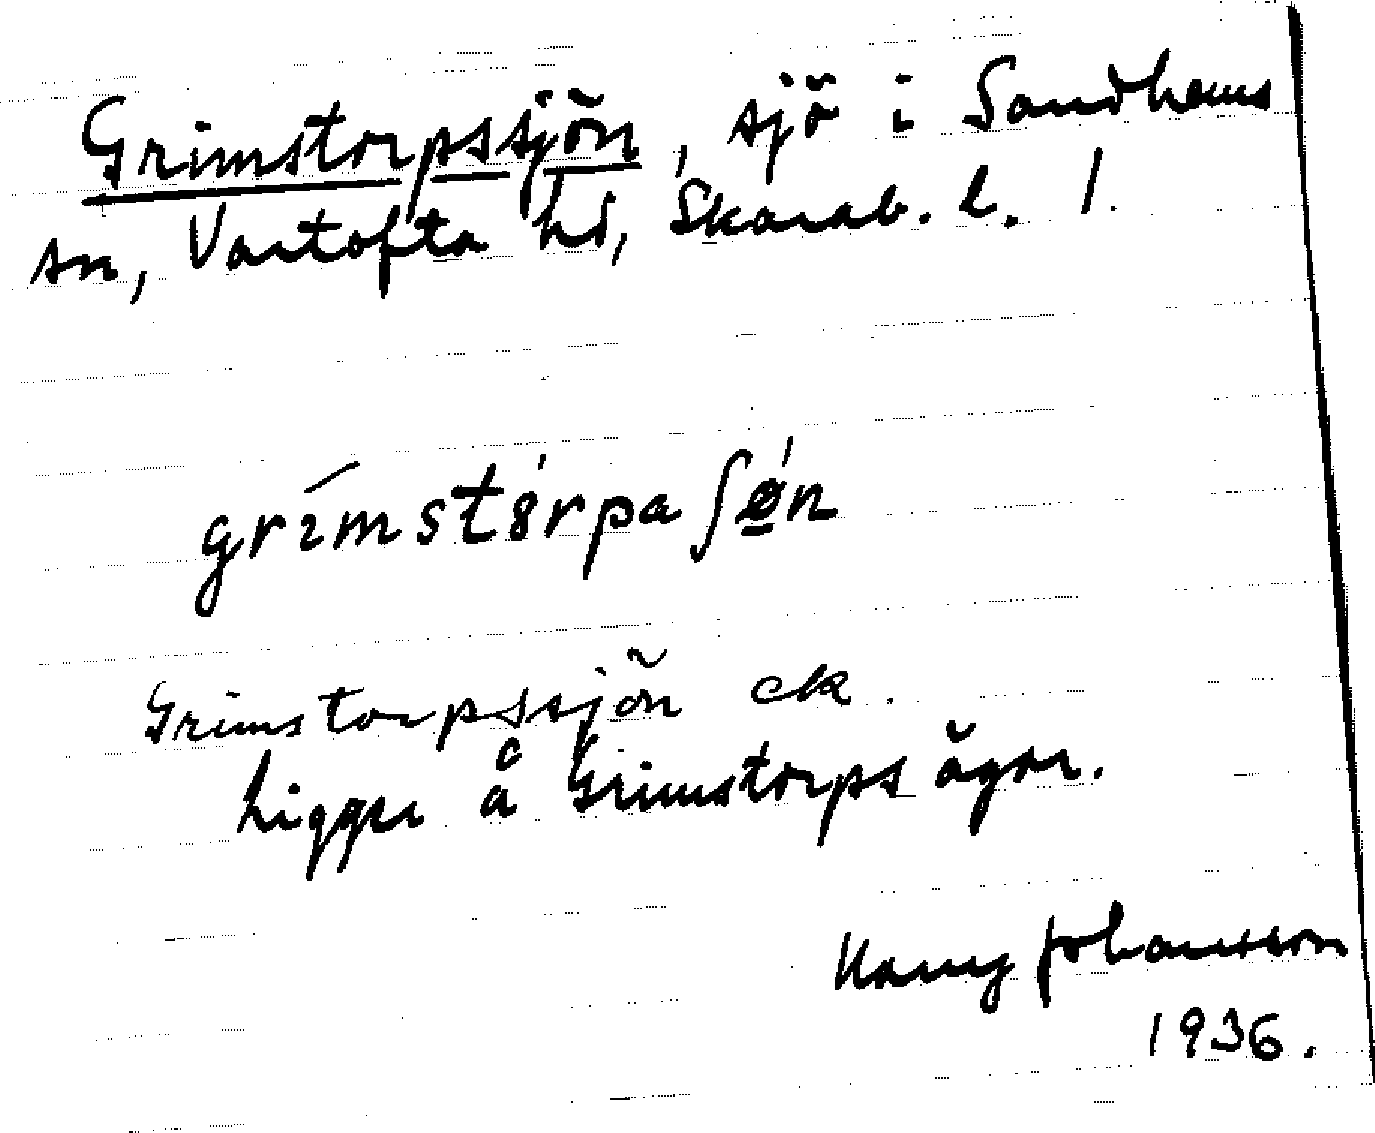 Grimstorpssjön, sjö i Sandhems
sn, Vartofta hd, Skarab. l. 1.
grímstórpaʃǿn
Grimstorpssjön ek.
Ligger å Grimstorps ägor.
Johansson
1936.